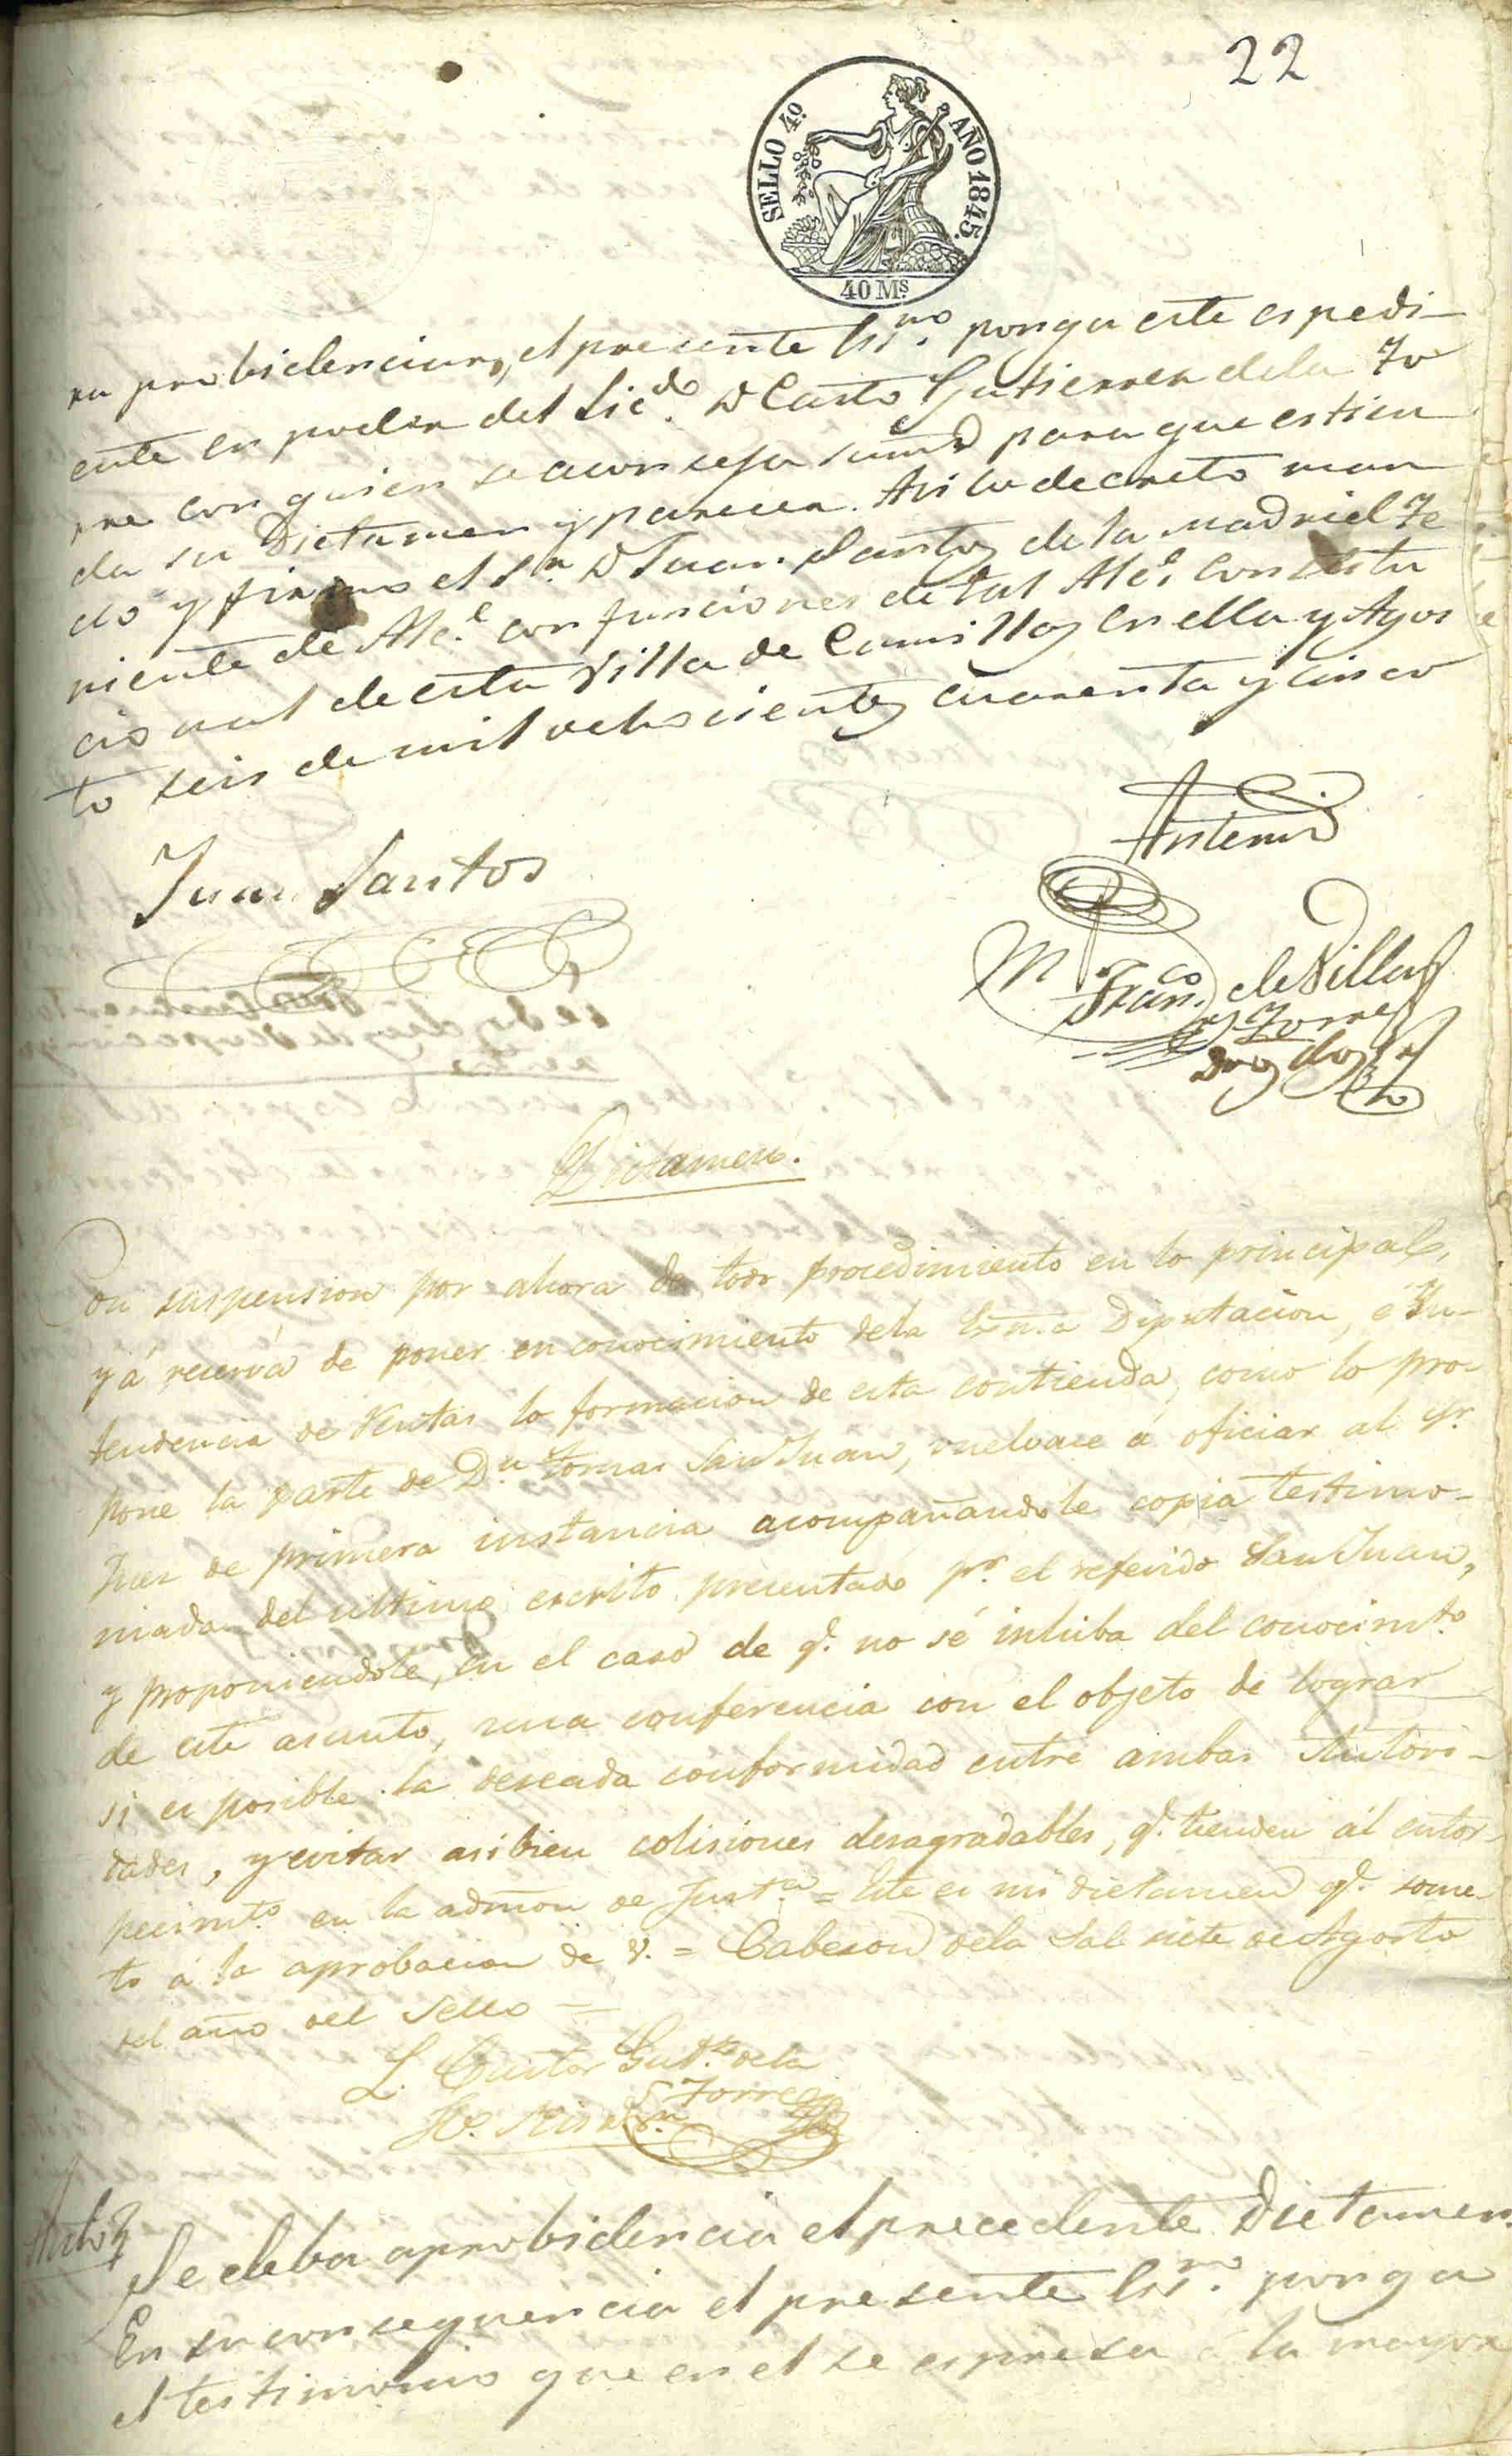 22
SELLO 4º AÑO 1845.
40 Mˢ
ra probidenciar, el presente Esⁿº. ponga este espedi-
ente en poder del Licdº. D Casto Gutierrez dela To
rre con quien se aconseja sumd para que estien
da su Dictamen y parecer. Asi lo decreto man
do y firmo el Sr. D Juan Santos de la Madrid Te
niente de Alce. con funciones de tal Alce. Constitu
cional de esta Villa de Comillas en ella y Agos
to seis de mil ochocientos cuarenta y cinco
Juan Santos
Antemi
Franco. de Villa
y Torre
Dros dos rs
Dictamen.
Con suspension por ahora de todo procedimiento en lo principal,
y á reserva de poner en conocimiento dela Exma Diputacion, é Yn-
tendencia de Rentas la formacion de esta contienda, como lo pro-
pone la parte de Dn. Tomas San Juan, vuelvase á oficiar al Sr.
Juez de primera instancia acompañandole copia testimo-
niada del ultimo escrito presentado pr. el referido San Juan,
y proponiendole, en el caso de q. no sé inhiba del conocimto.
de este asunto, una conferencia con el objeto de lograr
si es posible la deseada conformidad entre ambas Autori-
dades, y evitar asibien colisiones desagradables, q. tienden ál entor-
pecimto. en la admon de Justa. = Este es mi dictamen q. some-
to á la aprobacion de V. = Cabezon dela Sal siete de Agosto
del año del Sello =
L. Castor Gutz. dela
Torre
Auto
Se deba a probidencia el precedente Dictamen.
En su consequencia el presente Esno. ponga
el testimonio que en el se espresa á la mayor